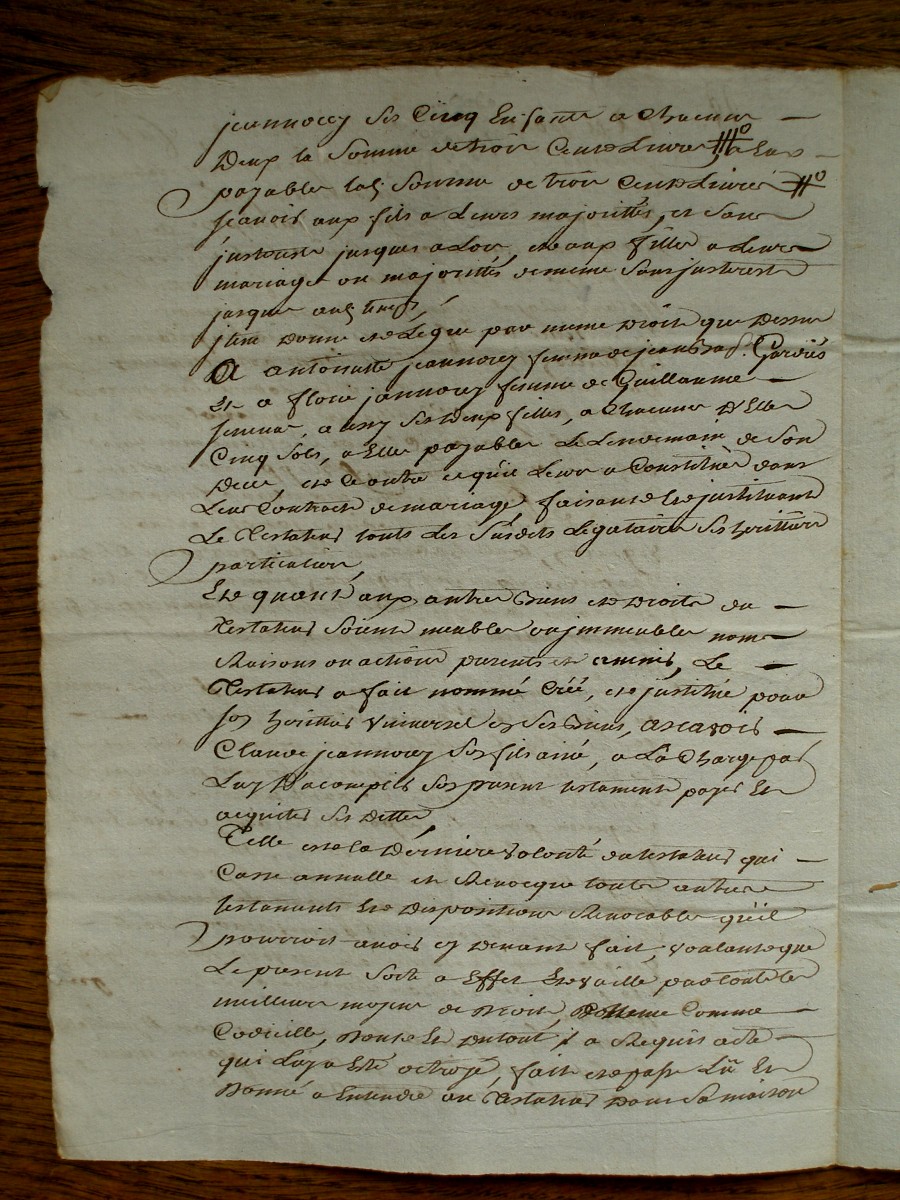 jeannorey ses Cinq Enfants a Chacun
Deux la Somme de trois Cents Livres
payable lad. Somme de trois Cents Livres
scavoir aux fils a Leurs majorittés, et Sans
justerest jusques a Lors, et aux filles a Leurs
mariage ou majorittés de meme Sans justerest
jusques aud. temps,
jtem Donne et Legue par meme Droit que Dessus
A antoinette jeannorey femme de jean Gardies
Et a florie jannorey femme de Guillaume
a ses Deux filles, a Chacune D'Elles
Cinq Sols, a Elles payables Le Lendemain de Son
Deces, et Ce outre ce qu'il Leur a Constitués dans
Leur Contracts de mariage, faisant Et justituant
Le Testateur touts Les Susdits Legataires Ses herittiers
particuliers,
Et quant aux autres Biens et Droits du
Testateur Soient meubles ou jmmeubles noms
Raisons ou actions presents et avenir, Le
Testateur a fait nommé Créé, et justitué pour
Son herittier Universel en Ses Biens, ascavoir
Claude jeannorey Son fils ainé, a La Charge par
Luy D'acomplir Son present testament payer Et
acquiter Ses Dettes
Telle est la Derniere volonté du testateur qui
Casse annulle et Revocque toutes autres
testaments Et Dispositions Revocables qu'il
pourroit avoir cy Devant fait, voulant que
Le present Sorte a Effet Et vaille par touts les
meilleurs moyens de Droit, Comme
Codicille, Donne Et Dutout a Requis acte
qui Luy a Eté octroyé, fait et passé Lû Et
Donné a Entendre au Testateur Dans Sa maison